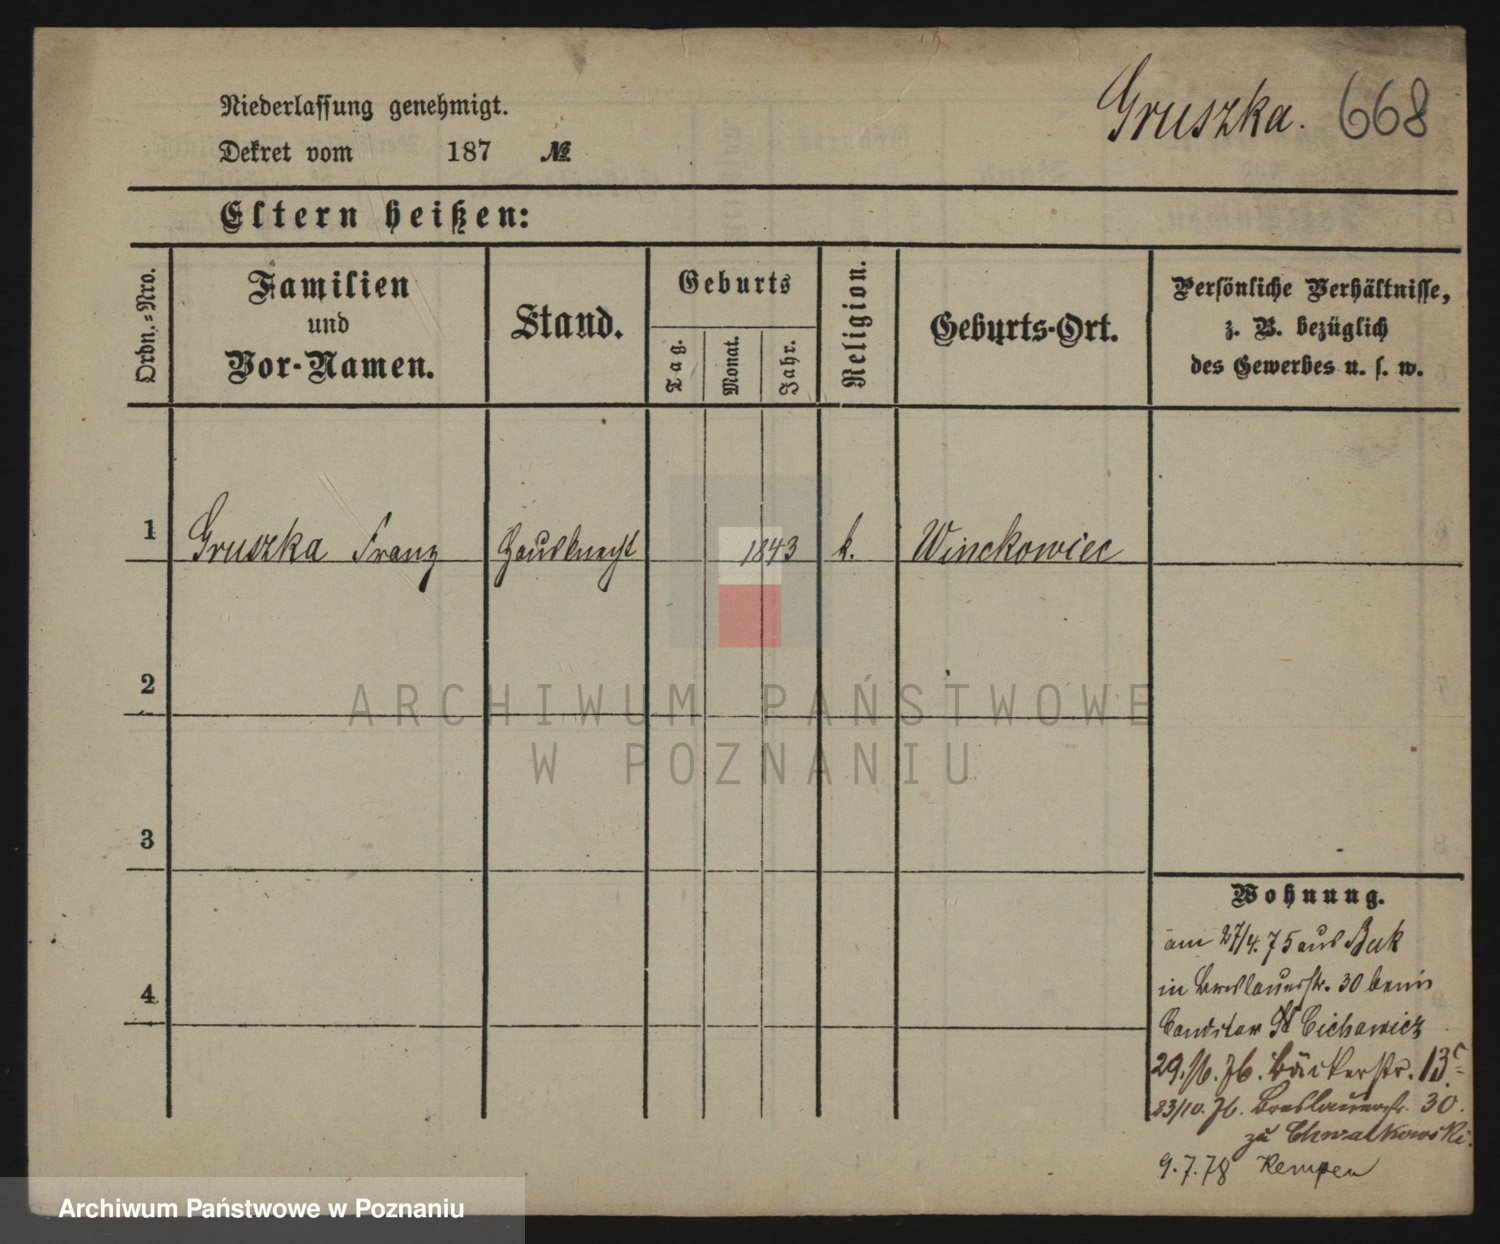 Gruszka. 668
Niederlassung genehmigt.
Dekret vom 187 №
Eltern heißen:
Ordn.-Nro.
Familien
und
Vor-Namen.
Stand.
Geburts
Tag.
Monat.
Jahr.
Religion.
Geburts-Ort.
Persönliche Verhältnisse,
z. B. bezüglich
des Gewerbes u. s. w.
1 Gruszka Franz Hausknecht 1843 k. Winckowiec
2
3
4
Wohnung.
am 27/4.75 aus Buk
in Breslauerstr. 30 beim
Conditor Cichowicz
29./6.76. Bäckerstr. 13c
23/10.76. Breslauerstr. 30.
zu Chwalkowski.
9.7.78 Kempen
ARCHIWUM PAŃSTWOWE
W POZNANIU
Archiwum Państwowe w Poznaniu